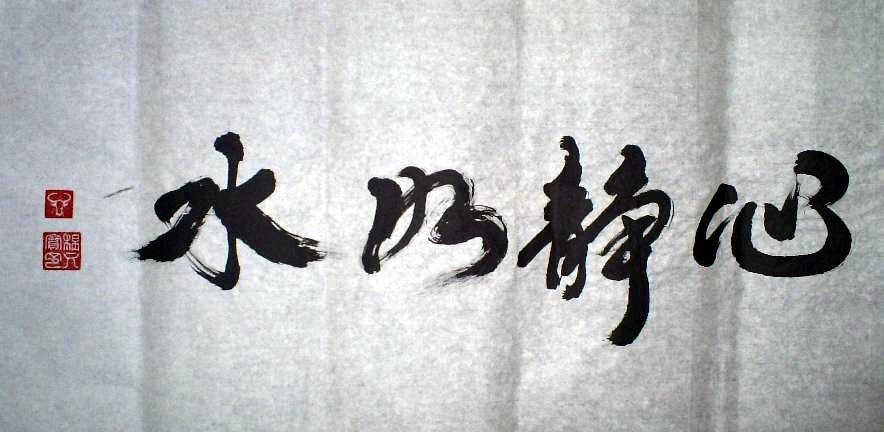 心静如水